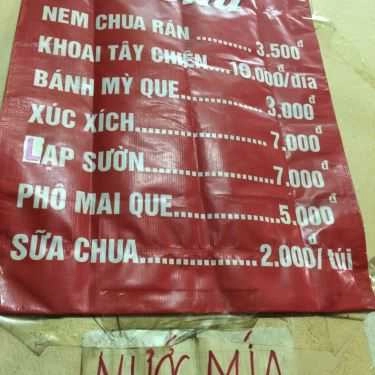 NEM CHUA RÁN ........ 3.500đ
KHOAI TÂY CHIÊN ..10.000đ/dĩa
BÁNH MỲ QUE ............ 3.000đ
XÚC XÍCH...................... 7.000đ
LẠP SƯỜN.................... 7.000đ
PHÔ MAI QUE............... 5.000đ
SỮA CHUA................ 2.000đ/ túi
NƯỚC MÍA